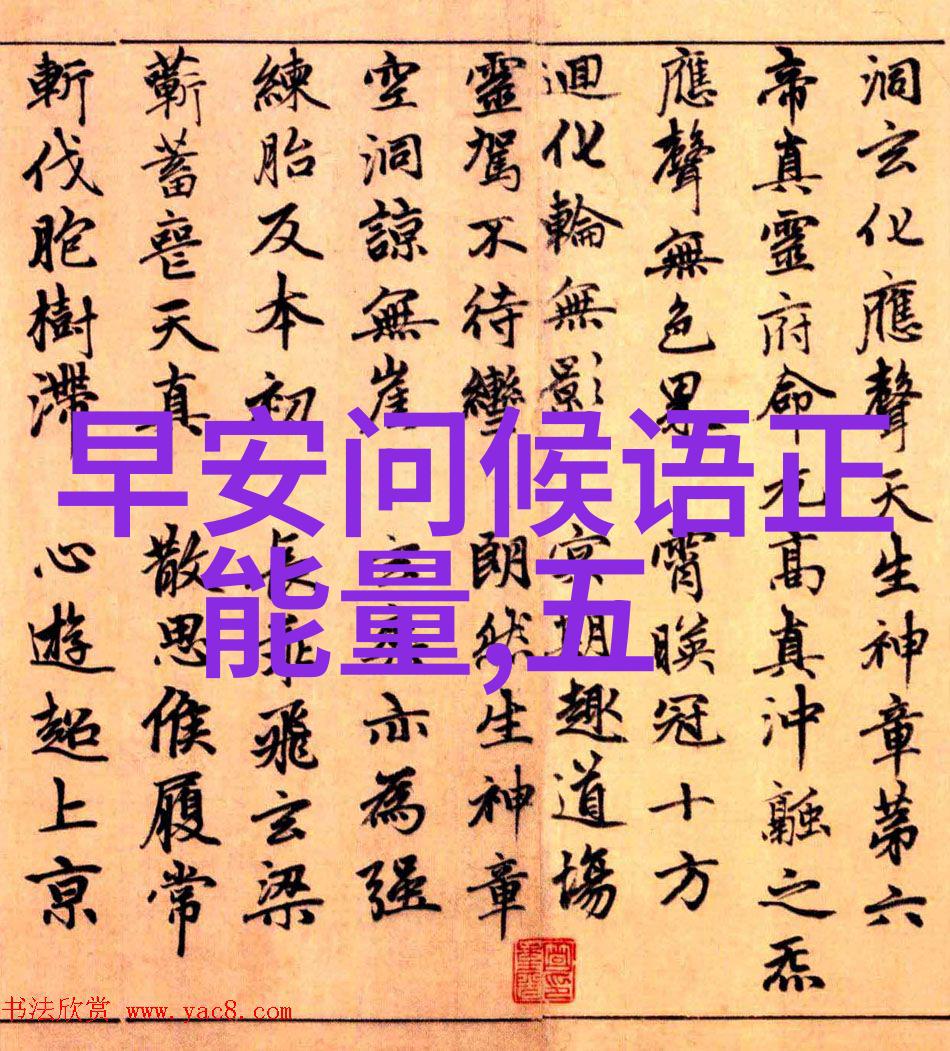 洞玄化應聲天生神章第六
帝真靈府命元高真沖融之炁
應聲無色界 霄暎冠十方
迴化輪無影 冥期趣道場
靈駕不待轡 朗然生神章
空洞諒無崖 玄爽亦為強
練胎反本初 長乘飛玄梁
蘄蓄喪天真 散思候履常
斬伐胞樹滯 心遊超上京
早安问候语正
能量,五
书法欣赏 www.yac8.com